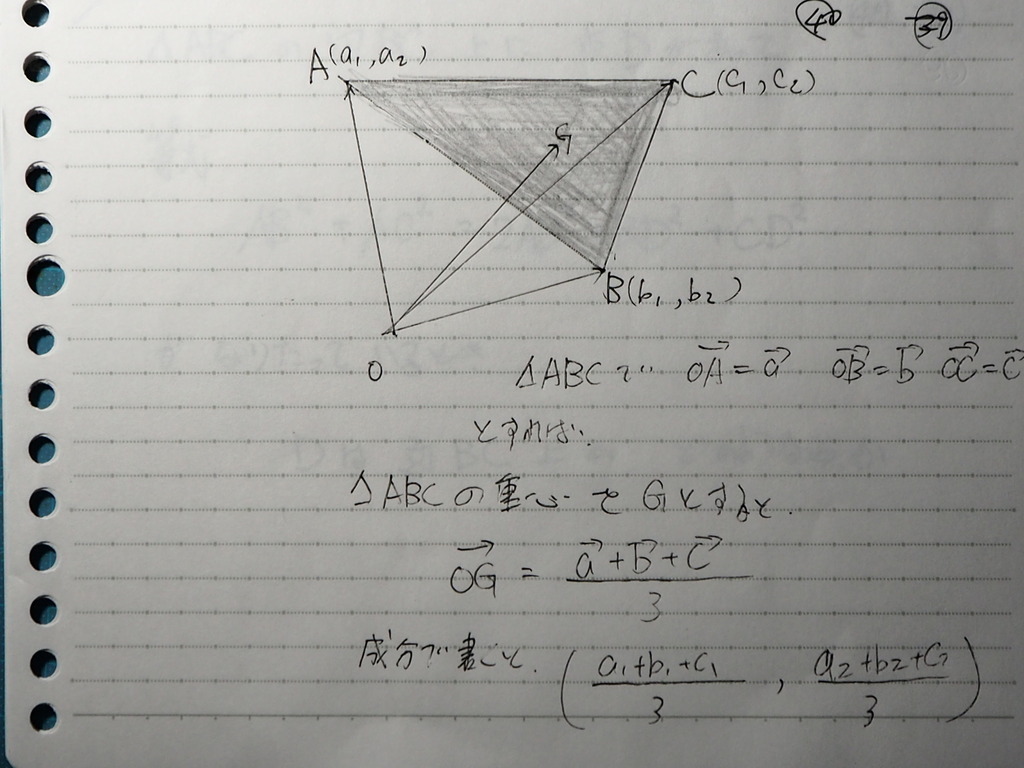 40 39
A(a₁,a₂)
C(C₁,C₂)
G
B(b₁,b₂)
O
△ABCで OA→=a→ OB→=b→ OC→=c→
とすれば、
△ABCの重心をGとすると.
OG→ = (a→+b→+c→)/3
成分で書くと. ((a₁+b₁+c₁)/3 , (a₂+b₂+c₂)/3)